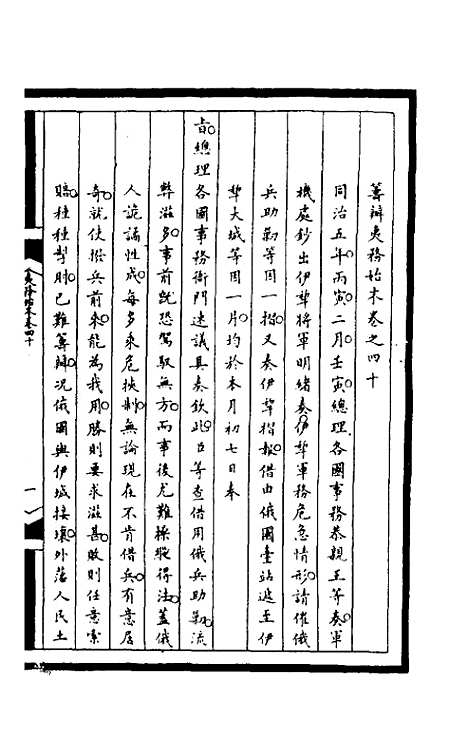 籌辦夷務始末卷之四十
同治五年丙寅二月壬寅總理各國事務恭親王等奏軍
機處鈔出伊犂將軍明緒奏伊犂軍務危急情形請催俄
兵助勦等因一摺又奏伊犂摺報借由俄國臺站遞至伊
犂大城等因一片均於本月初七日奉
旨總理各國事務衙門速議具奏欽此臣等查借用俄兵助勦流
弊滋多事前既恐駕馭無方而事後尤難操縱得法蓋俄
人詭譎性成每多乘危挾制無論現在不肯借兵有意居
奇就使撥兵前來能為我用勝則要求滋甚敗則任意索
賠種種掣則已難籌辦況俄國與伊城接壤外藩人民土
夷務始末卷四十
一